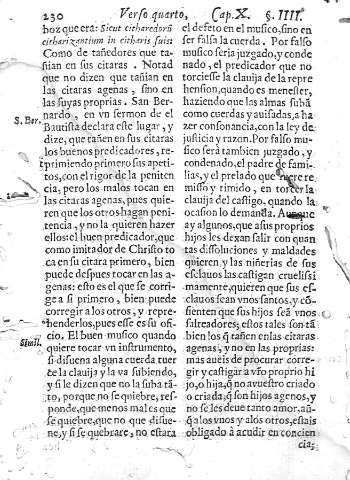 230 Verso quarto, Cap.X. §. IIII.
hoz que era: Sicut citharedorũ
citharizantium in citharis suis:
Como de tañedores que ta-
ñian en sus citaras. Notad
que no dizen que tañian en
las citaras agenas, sino en
las suyas proprias. San Ber-
S. Ber.
nardo, en vn sermon de el
Bautista declara este lugar, y
dize, que tañen en sus citaras
los buenos predicadores, re-
primiendo primero sus apeti-
tos, con el rigor de la peniten
cia, pero los malos tocan en
las citaras agenas, pues quie-
ren que los otros hagan peni-
tencia, y no la quieren hazer
ellos: el buen predicador, que
como imitador de Christo to
ca en su citara primero, bien
puede despues tocar en las a-
genas: esto es el que se corri-
ge a si primero, bien puede
corregir a los otros, y repre-
henderlos, pues esse es su ofi-
cio. El buen musico quando
Simil.
quiere tocar vn instrumento,
si disuena alguna cuerda tuer
ce la clauija y la va subiendo,
y si le dizen que no la suba tã-
to, porque no se quiebre, res-
ponde, que menos mal es que
se quiebre, que no que disue-
ne, y si se quebrare, no estara
el defeto en el musico, sino en
ser falsa la cuerda. Por falso
musico seria juzgado, y conde
nado, el predicador que no
torciesse la clauija de la repre
hension, quando es menester,
haziendo que las almas subã
como cuerdas y auisadas, a ha
zer consonancia, con la ley de
justicia y razon. Por falso mu-
sico será tambien juzgado, y
condenado, el padre de fami-
lias, y el prelado que fuere re
misso y timido, en torcer la
clauija del castigo, quando la
ocasion lo demanda. Aunque
ay algunos, que a sus proprios
hijos les dexan salir con quan
tas dissoluciones y maldades
quieren, y las niñerias de sus
esclauos las castigan cruelissi
mamente, quieren que sus es-
clauos sean vnos santos, y cõ-
sienten que sus hijos seã vnos
salteadores; estos tales son tã
bien los q̃ tañen en las citaras
agenas, y no en las proprias:
mas aueis de procurar corre-
gir y castigar a vr̃o proprio hi
jo, o hija, q̃ no a vuestro criado
o criada, q̃ son hijos agenos, y
no se les deue tanto amor. aũ-
q̃ a los vnos y a los otros, estais
obligado à acudir en concien
cia;